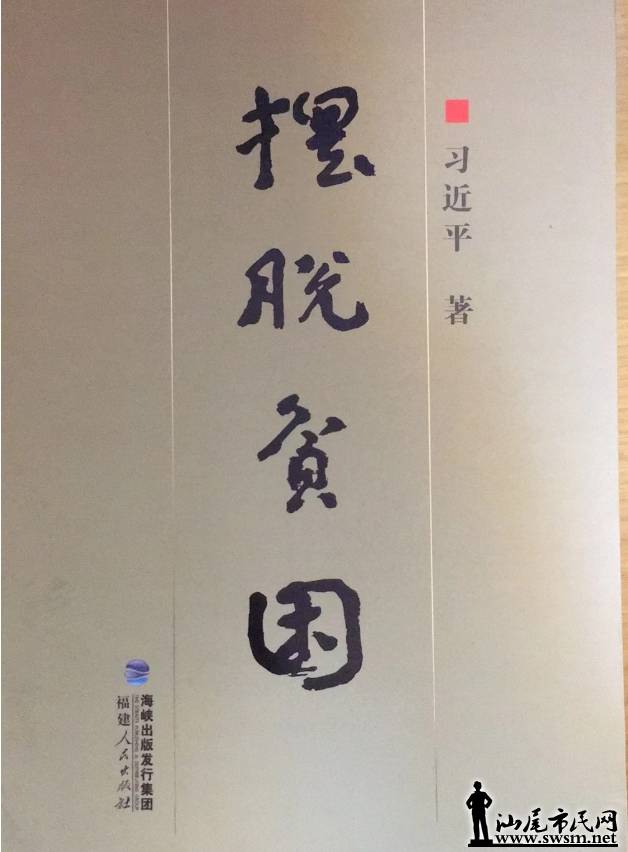 摆脱贫困
习近平 著
海峡出版发行集团
福建人民出版社
汕尾市民网
www.swsm.net